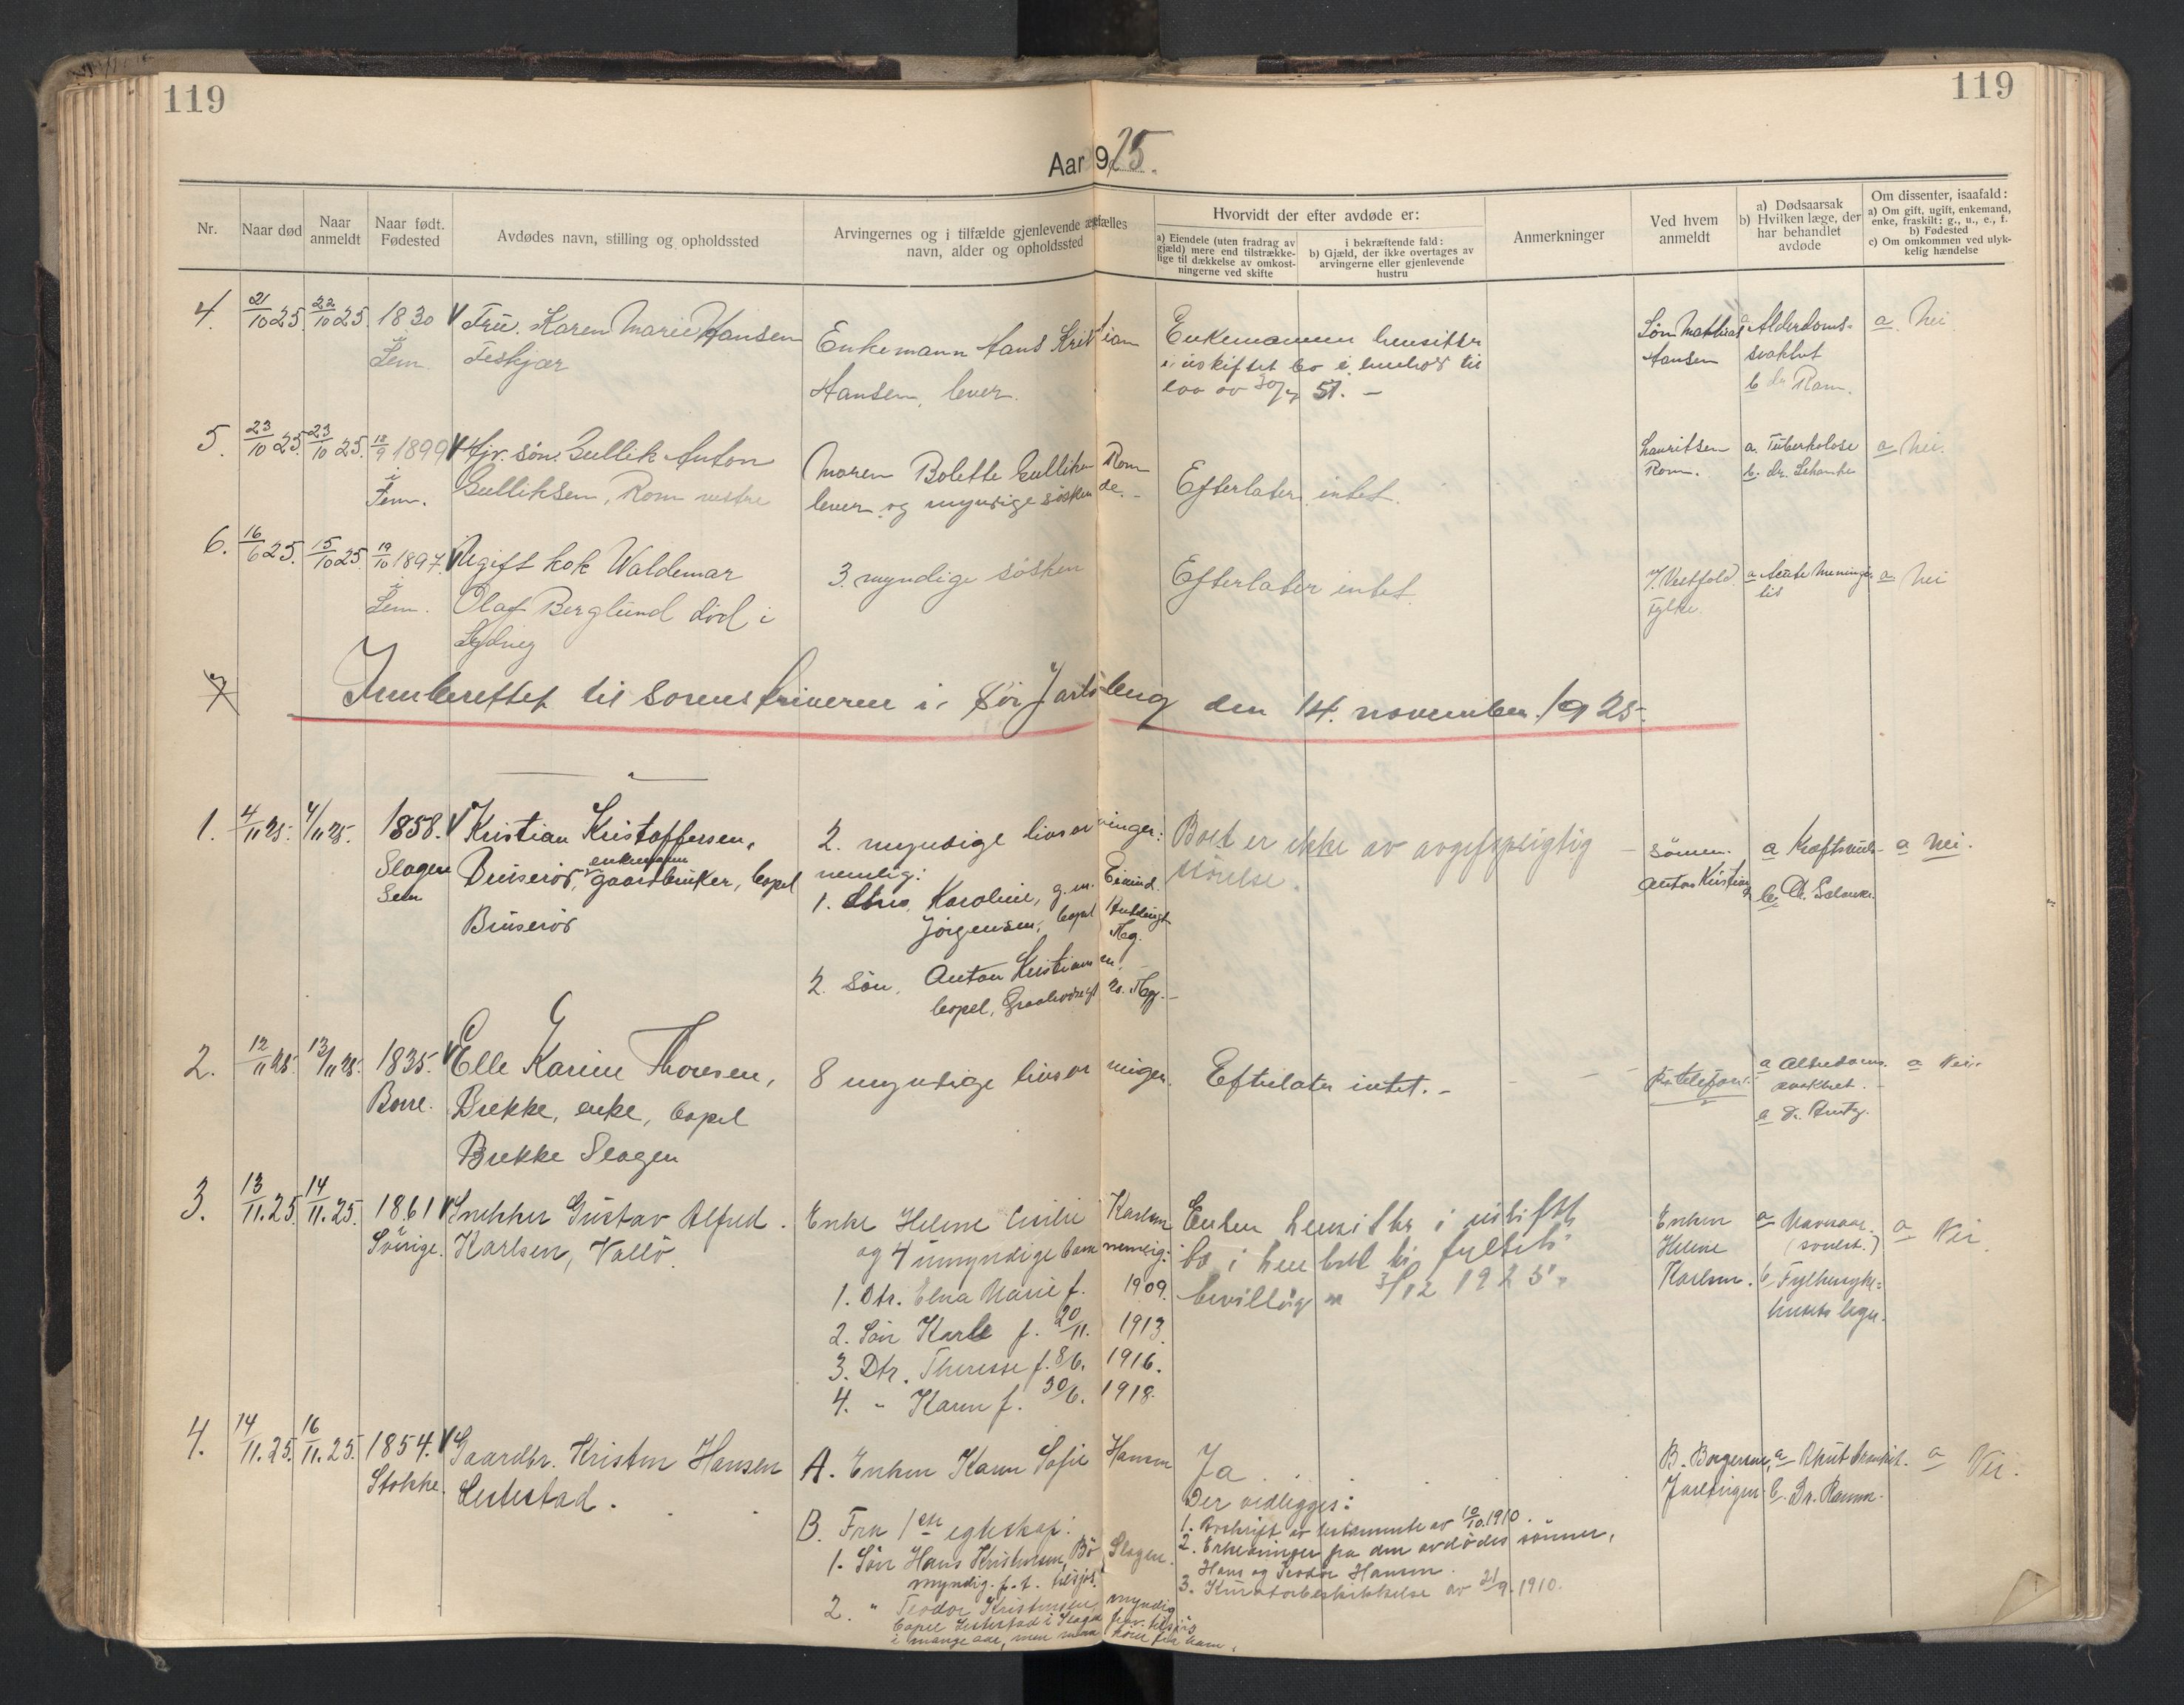 119
119
Aar 925.
Nr.
Naar død
Naar anmeldt
Naar født. Fødested
Avdødes navn, stilling og opholdssted
Arvingernes og i tilfælde gjenlevende ægtefælles navn, alder og opholdssted
Hvorvidt der efter avdøde er:
a) Eiendele (uten fradrag av gjæld) mere end tilstrække-lige til dækkelse av omkost-ningerne ved skifte
i bekræftende fald:
b) Gjæld, der ikke overtages av arvingerne eller gjenlevende hustru
Anmerkninger
Ved hvem anmeldt
a) Dødsaarsak
b) Hvilken læge, der har behandlet avdøde
Om dissenter, isaafald:
a) Om gift, ugift, enkemand, enke, fraskilt: g., u., e., f.
b) Fødested
c) Om omkommen ved ulyk-kelig hændelse
4. 21/10 25. 22/10 25. 1830 V Fru Karen Marie Hansen
i Sem. Feskjær
Enkemann Hans Kristian
Hansen, lever.
Enkemannen hensitter
i uskiftet bo i henhold til
lov av 30/7 51. –
Søn Mathias
Hansen
a Alderdoms-
svakhet
b dr Ram.
a. Nei
5. 23/10 25. 23/10 25. 18/9 1899 V Hjv. søn Gullik Anton
i Sem. Gulliksen, Rom vestre
Maren Bolette Gulliksen Rom
lever og myndige søsken de. –
Efterlater intet.
Lauritsen
Rom.
a. Tuberkolose
b. dr.
a Nei.
6. 16/6 25. 15/10 25. 19/10 1897. V Ugift kok Waldemar
i Sem. Olaf Berglund død i
Sydney
3 myndige søsken
Efterlater intet.
V. Vestfold
Fylke.
a Acute Meningi-
tis
a. Nei
7
Innberettet til sorenskriveren i Sør Jarlsberg den 14. november 1925.
1. 4/11 25. 4/11 25. 1858. V Kristian Kristoffersen,
Slagen
Sem
enkemann
gaardbruker, bopel
2 myndige livsarvinger:
nemlig:
1. Karoline, g. m. Eivind
Jørgensen, bopel
Tbg.
2. Søn, Anton Kristiansen,
bopel, Tbg. –
Boet er ikke av avgiftspligtig
størrelse.
Sønnen.
Anton Kristians
a Kræftsvulst
b.
a Nei.
2. 12/11 25. 13/11 25. 1835. V Elle Karine Thoresen,
Borre. Brekke, enke, bopel
Brekke Slagen
8 myndige livsarvinger.
Efterlater intet. –
Pr telefon.
a Alderdoms-
svakhet. –
a dr.
a Nei.
3. 13/11. 25. 14/11. 25. 1861 V Snekker Gustav Alfred
Sverige. Karlsen, Vallø.
Enke Helene Cecilie Karlsen
og 4 umyndige barn nemlig:
1. Dtr. Elna Marie f. 1909.
2. Søn Karle f. 20/11. 1913.
3. Dtr. Therese f. 8/6. 1916.
4. " Karen f. 30/6. 1918.
Enken hensitter i uskiftet
bo i henhold til fylkets
bevilling av 3/12 1925.
Enken
Helene
Karlsen.
a
b. Fylkessyke-
husets læge.
a Nei.
4. 14/11. 25. 16/11. 25. 1854. V Gaardbr. Kristen Hansen
Stokke.
A. Enken Karen Sofie Hansen
B. Fra 1ste egteskap:
1. Søn Hans Kristensen, Bø Slagen.
myndig. f. t. tilsjøs.
2. " Teodor Kristensen, myndig
i mange aar, men
Ja . . .
Der vedlægges:
1. Avskrift av testamente av 10/10. 1910.
2. Erklæringer fra den avdødes sønner,
Hans og Teodor Hansen.
3. Kuratorbeskikkelse av 21/9. 1910.
B. Borgersen,
a
b. Dr.
a Nei.